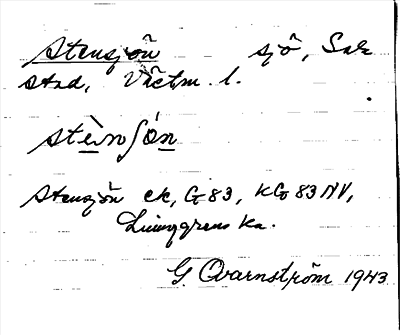 Stensjön sjö, Sala
stad, Västm. l.
stè̱nʃó̱n
Stensjön ek, G 83, KG 83 NV,
Ljunggrens ka.
G. Qvarnström 1943